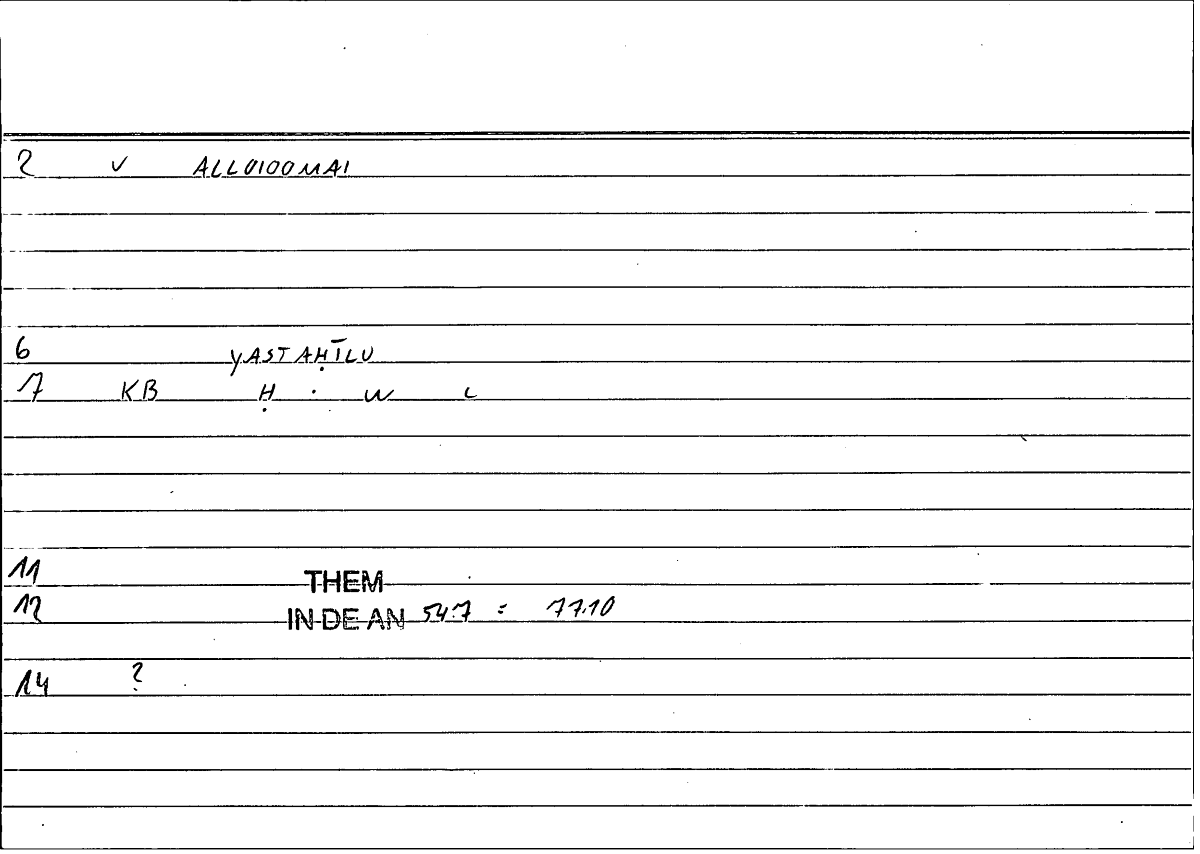 2 v ALLOIOOMAI
6 yASTAḤĪLU
7 KB Ḥ . W L
11 THEM
12 IN DE AN 54.7 = 77.10
14 ?